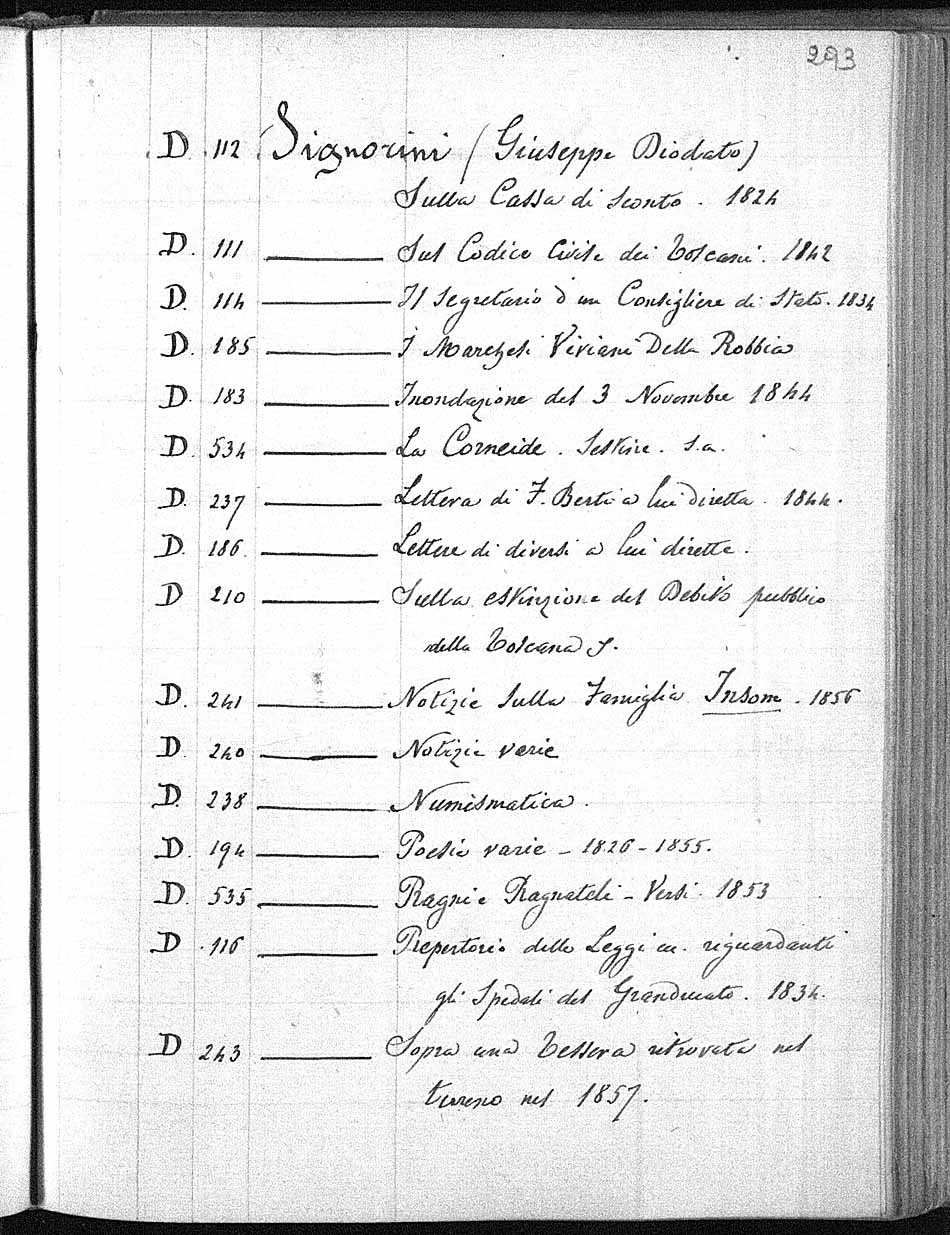 293
D. 112 Signorini (Giuseppe Diodato)
Sulla Cassa di Sconto. 1824
D. 111 Sul Codice Civile dei Toscani. 1842
D. 114 Il Segretario d'un Consigliere di Stato. 1834
D. 185 I Marchesi Viviani Della Robbia
D. 183 Inondazione del 3 Novembre 1844
D. 534 La Corneide. Sestine. S.a.
D. 237 Lettera di F. Berti a lui diretta. 1844.
D. 186 Lettere di diversi a lui dirette.
D 210 Sulla estinzione del Debito pubblico
della Toscana S.
D. 241 Notizie sulla Famiglia Insom. 1856
D. 240 Notizie varie
D. 238 Numismatica.
D. 194 Poesie varie - 1826-1855.
D. 535 Ragni e Ragnateli - Versi. 1853
D. 116 Repertorio delle Leggi riguardanti
gli Spedali del Granducato. 1834.
D 243 Sopra una Tessera ritrovata nel
terreno nel 1857.